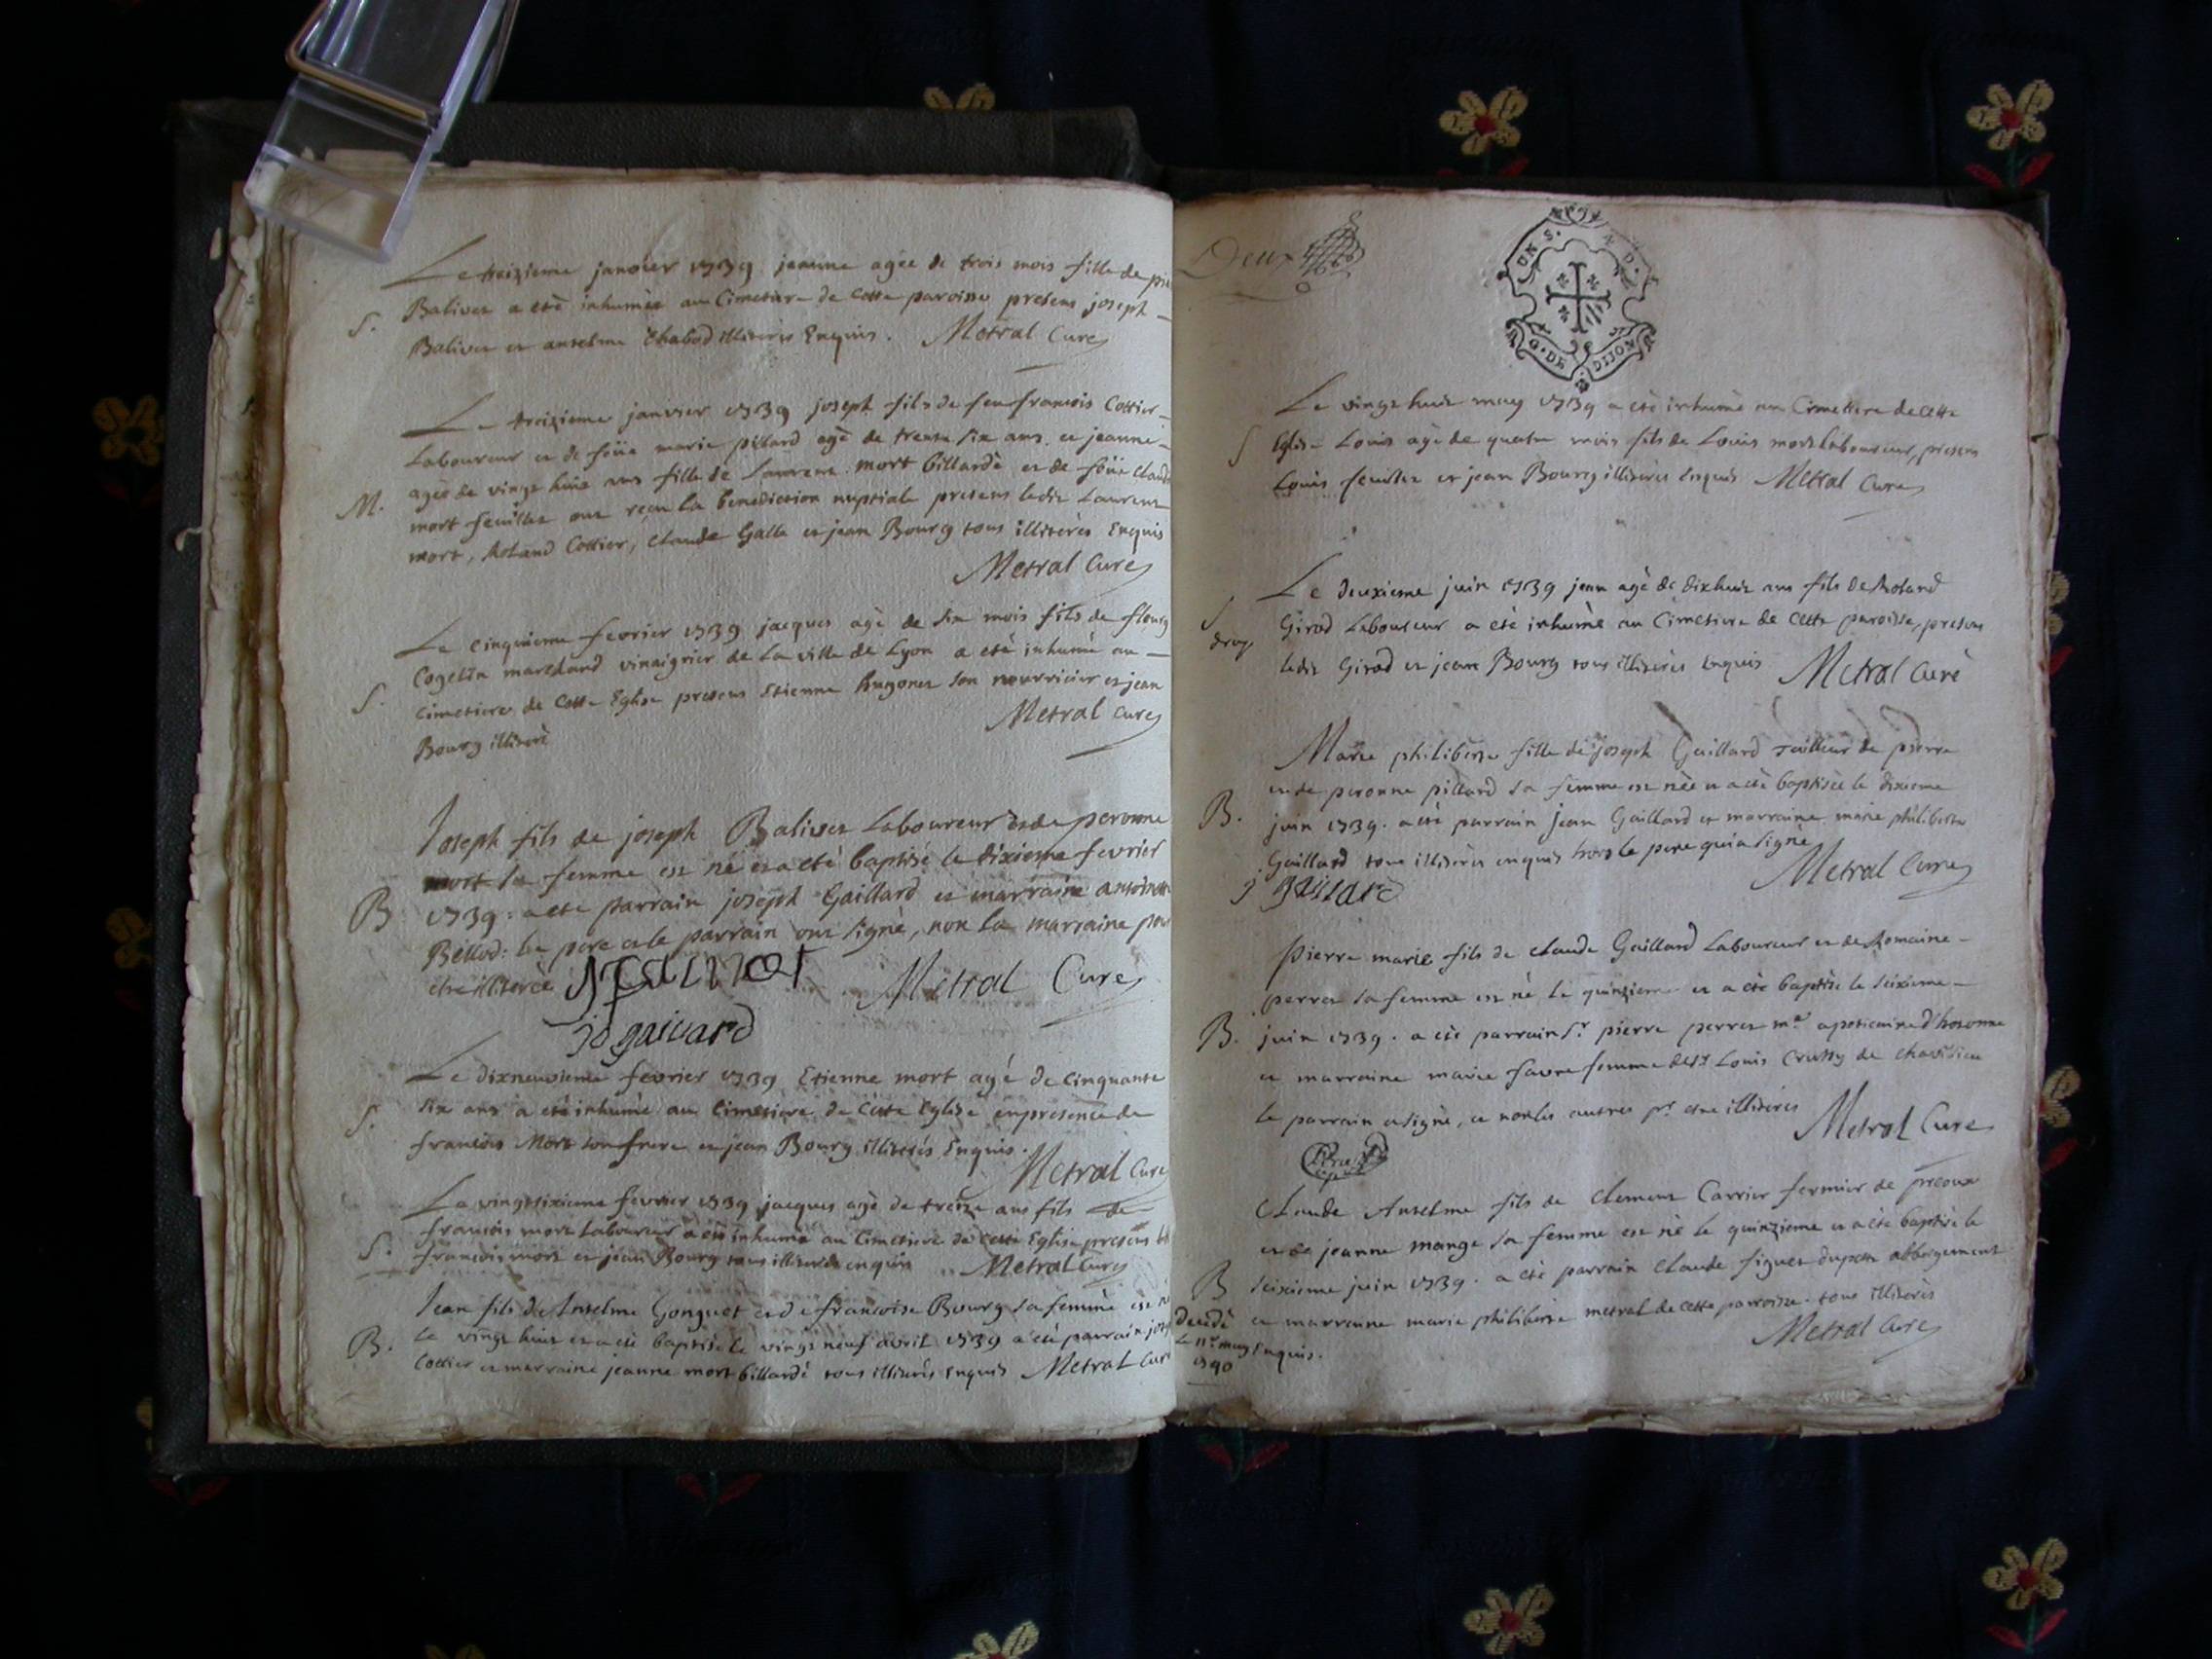 Le treizieme janvier 1739 jeanne agée de trois mois fille de
Balivet a eté inhumée au Cimetiere de Cette paroisse presens joseph
S.
Balivet et anselme Chabod illiterés Enquis. Metral Curé
Le treizieme janvier 1739 joseph fils de feu francois Cottier
Laboureur et de föüe marie pillard agé de trente six ans et jeanne
agée de vingt huit ans fille de Laurent mort billarde et de föüe
M.
mort feuillet ont reçu la benediction nuptiale presens ledit Laurent
mort, Roland Cottier, Claude Galle et jean Bourg tous illiterés Enquis
Metral Curé
Le cinquieme fevrier 1739 jacques agé de six mois fils de fleury
Cogelin marchand vinaigrier de La ville de Lyon a eté inhumé au
S.
cimetiere de Cette Eglise presens Etienne hugonet son nourricier et jean
Bourg illiteré
Metral Curé
Joseph fils de joseph Balivet Laboureur et de peronne
mort sa femme est né et a eté baptisé le dixieme fevrier
B
1739. a eté parrain joseph Gaillard et marraine
Bellod: le pere et le parrain ont signé, non la marraine pour
etre illiterée
Metral Curé
jo gaillard
Le dixneuvieme fevrier 1739 Etienne mort agé de Cinquante
S.
six ans a eté inhumé au Cimetiere de Cette Eglise en presence de
francois Mort son frere et jean Bourg illiterés Enquis.
Metral Curé
Le vingtsixieme fevrier 1739 jacques agé de treize ans fils de
francois mort Laboureur a eté inhumé au Cimetiere de Cette Eglise presens
S.
francois mort et jean Bourg tous illiterés enquis Metral Curé
Jean fils de Anselme Gonguet et de francoise Bourg sa femme est né
B.
le vingt huit et a eté baptisé le vingt neuf avril 1739 a eté parrain
Cottier et marraine jeanne mort billarde tous illiterés Enquis Metral Curé
Deux
G. DE DIJON
Le vingt huit may 1739 a eté inhumé au Cimetiere de Cette
S
Eglise Louis agé de quatre mois fils de Louis mort laboureur, presens
Louis feuillet et jean Bourg illiterés Enquis Metral Curé
Le deuxieme juin 1739 jean agé de dixhuit ans fils de Roland
S
Girod Laboureur a eté inhumé au Cimetiere de Cette paroisse, presens
ledit Girod et jean Bourg tous illiterés Enquis Metral Curé
Marie philiberte fille de joseph Gaillard Tailleur de pierre
et de peronne pillard sa femme est née et a eté baptisée le dixieme
B.
juin 1739. a eté parrain jean Gaillard et marraine marie philiberte
Gaillard tous illiterés enquis hors le pere qui a signé
j gaillard
Metral Curé
Pierre marie fils de Claude Gaillard Laboureur et de Romaine
perret sa femme est né le quinzieme et a eté baptisé le seixieme
B.
juin 1739. a eté parrain Sr. pierre perret me apoticaire d'
et marraine marie favre femme de Sr Louis
le parrain a signé, et non les autres pr etre illiterés
Metral Curé
Claude Anselme fils de Clement Carrier fermier de
et de jeanne mange sa femme est né le quinzieme et a eté baptisé le
B
seixieme juin 1739. a eté parrain Claude figuet du petit abbergement
decedé
et marraine marie philiberte metral de cette parroisse. tous illiterés
le 11e may
Enquis.
1740
Metral Curé